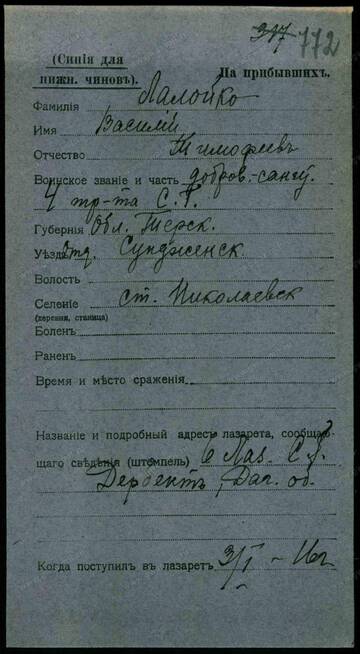 317 772
(Синія для
нижн. чиновъ). На прибывшихъ.
Фамилія Лалойко
Имя Василій
Отчество Тимофеевъ
Воинское званіе и часть добров.-санит.
4 тр-та С. Г.
Губернія Обл. Терск.
Уѣздъ Отд. Сунженск.
Волость
Селеніе ст. Николаевск
(деревня, станица)
Боленъ
Раненъ
Время и мѣсто сраженія
Названіе и подробный адресъ лазарета, сообщаю-
щаго свѣдѣнія (штемпель) 6 Лаз. С. Г.
Дербентъ, Даг. об.
Когда поступилъ въ лазаретъ 3/I – 16 г.